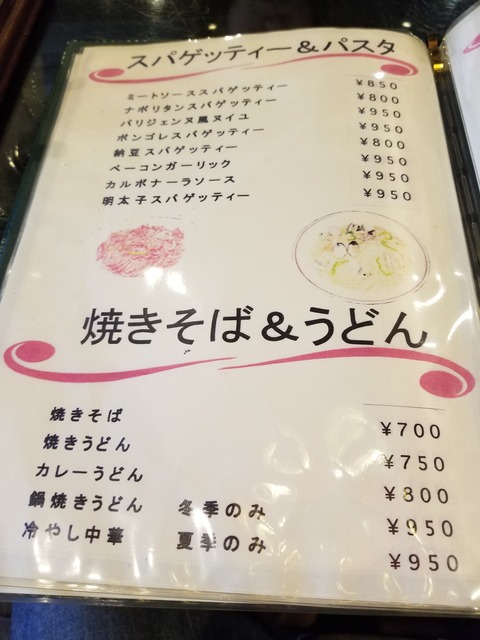 スパゲッティー＆パスタ
ミートソーススパゲッティー ¥850
ナポリタンスパゲッティー ¥800
パリジェンヌ風ヌイユ ¥950
ボンゴレスパゲッティー ¥950
納豆スパゲッティー ¥800
ベーコンガーリック ¥950
カルボナーラソース ¥950
明太子スパゲッティー ¥950
焼きそば＆うどん
焼きそば ¥700
焼きうどん ¥750
カレーうどん ¥800
鍋焼きうどん 冬季のみ ¥950
冷やし中華 夏季のみ ¥950